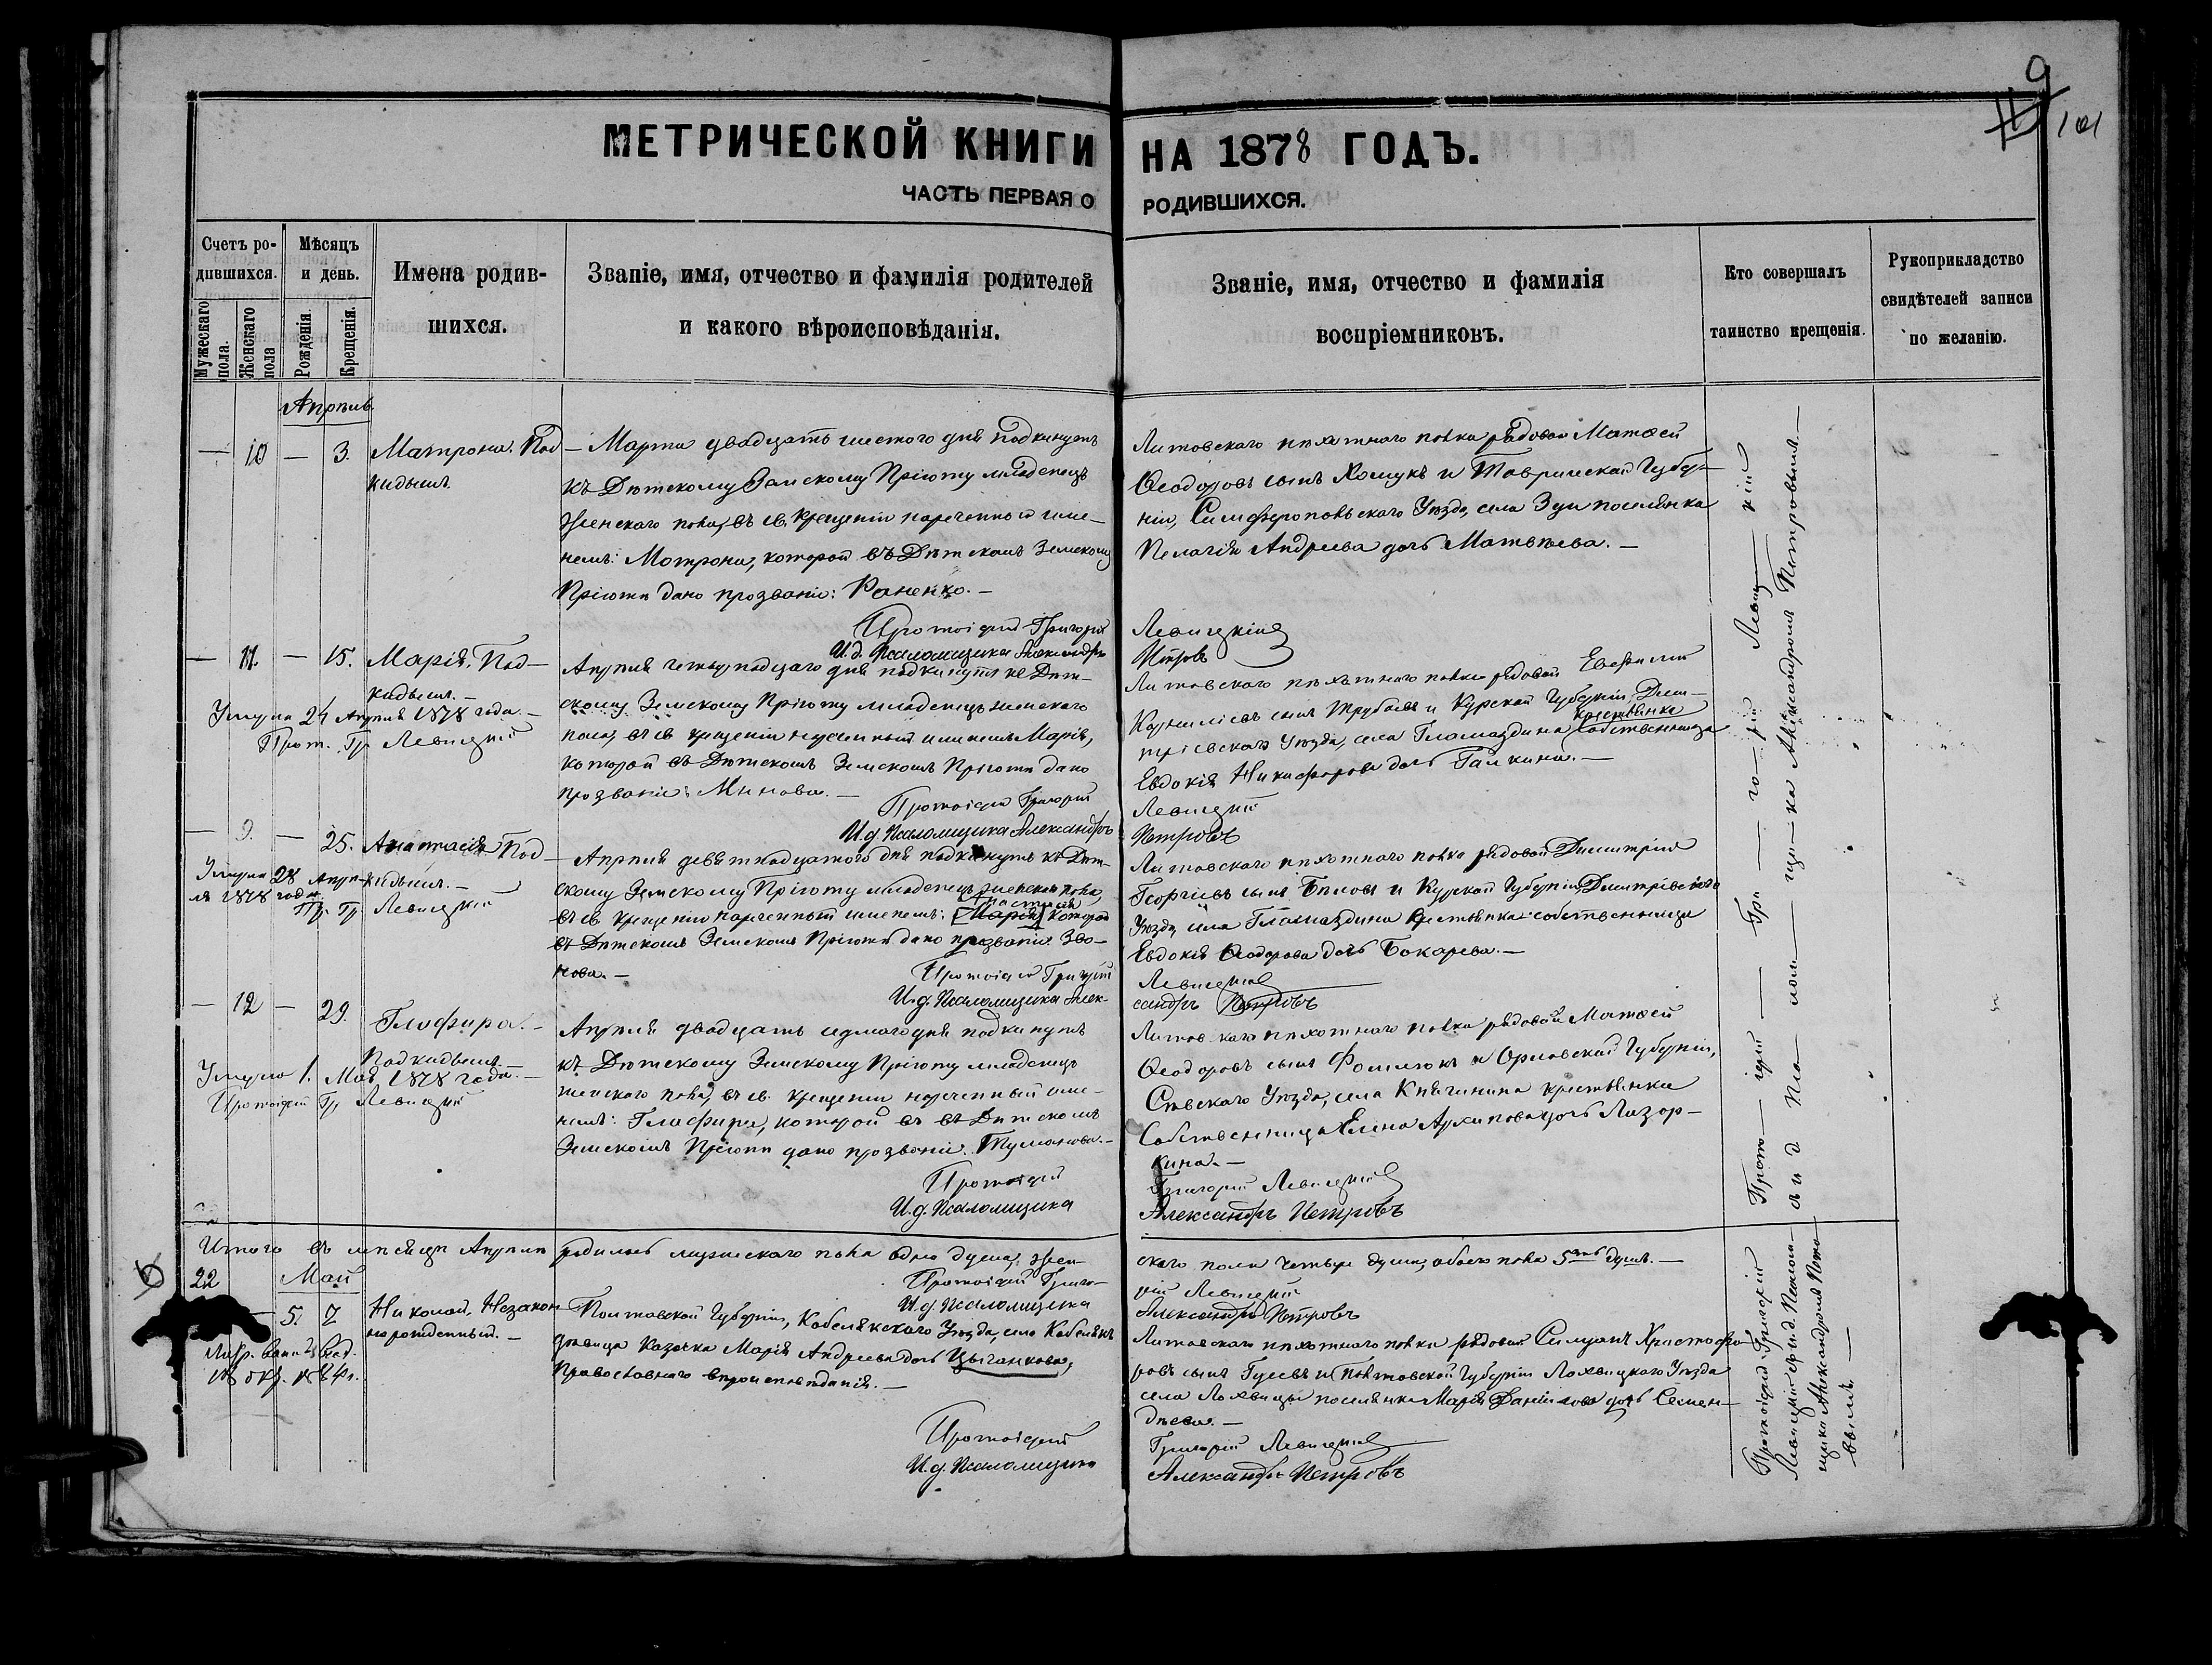 9
101
МЕТРИЧЕСКОЙ КНИГИ НА 1878 ГОДЪ.
ЧАСТЬ ПЕРВАЯ О РОДИВШИХСЯ.
Счетъ родившихся.
Мужескаго пола.
Женскаго пола
Мѣсяцъ и день.
Рожденія.
Крещенія.
Имена родившихся.
Званіе, имя, отчество и фамилія родителей
и какого вѣроисповѣданія.
Званіе, имя, отчество и фамилія
воспріемниковъ.
Кто совершалъ
таинство крещенія.
Рукоприкладство
свидѣтелей записи
по желанію.
Апрѣль
— 10 — 3. Матрона. Под-
кидышъ
Марта двадцать шестого дня подкинутъ
къ Дѣтскому Земскому Пріюту младенецъ
женскаго пола, въ св. крещеніи нареченный име-
немъ: Матрона, которой въ Дѣтскомъ Земскомъ
Пріютѣ дано прозваніе: Раненко. —
Литовскаго пѣхотнаго полка рядовой Матѳей
Ѳеодоровъ сынъ Хомукъ и Таврической Губер-
ніи, Симферопольскаго Уѣзда, села Зуи поселянка
Пелагія Андреева дочь Матвѣева. —
Протоіерей Григорій Левицкій
И.д. Псаломщика Александръ Петровъ
— 11. — 15. Марія. Под-
кидышъ. —
Умерла 24 Апрѣля 1878 года. —
Прот. Гр. Левицкій
Апрѣля четырнадцаго дня подкинутъ къ Дѣт-
скому Земскому Пріюту младенецъ женскаго
пола, въ св крещеніи нареченный именемъ Марія,
которой въ Дѣтскомъ Земскомъ Пріютѣ дано
прозваніе: Минова. —
Литовскаго пѣхотнаго полка рядовой Евфимій
Корниліевъ сынъ Трубаевъ и Курской Губерніи, Дми-
тріевскаго Уѣзда, села Гламаздина крестьянка собственница
Евдокія Никифорова дочь Галкина. —
Протоіерей Григорій Левицкій
И.д. Псаломщика Александръ Петровъ
— 9. — 25. Анастасія Под-
кидышъ. —
Умерла 28 Апрѣ-
ля 1878 года
Пр. Гр. Левицкій
Апрѣля девятнадцатого дня подкинутъ къ Дѣт-
скому Земскому Пріюту младенецъ женскаго пола,
въ св крещеніи нареченный именемъ: [Марія] Анастасія которой
въ Дѣтскомъ Земскомъ Пріютѣ дано прозваніе Зво-
нова. —
Литовскаго пѣхотнаго полка рядовой Димитрій
Георгіевъ сынъ Бѣловъ и Курской Губерніи, Дмитріевскаго
Уѣзда, села Гламаздина крестьянка-собственница
Евдокія Ѳеодорова дочь Бокарева. —
Протоіерей Григорій Левицкій
И.д. Псаломщика Александръ Петровъ
— 12 — 29. Глафира. —
Подкидышъ. —
Умерла 1. Мая 1878 года. —
Протоіерей Гр. Левицкій
Апрѣля двадцать седмаго дня подкинутъ
къ Дѣтскому Земскому Пріюту младенецъ
женскаго пола, въ св. крещеніи нареченный име-
немъ: Глафира, которой въ въ Дѣтскомъ
Земскомъ Пріютѣ дано прозваніе. Туманова. —
Литовскаго пѣхотнаго полка рядовой Матѳей
Ѳеодоровъ сынъ и Орловской Губерніи,
Сѣвскаго Уѣзда, села Княгинина крестьянка
Собственница Елена Архипова дочь Лазор-
кина. —
Протоіерей Григорій Левицкій
И.д. Псаломщика Александръ Петровъ
Прото-іерей Гри-го-рій Левиц-кій
и и д Пса-лом-щи-ка Александромъ Петровымъ. —
Итого въ мѣсяцѣ Апрѣлѣ родилось мужескаго пола одна душа, жен-
скаго пола четыре души, обоего пола 5ть душъ. —
Протоіерей Григорій Левицкій
И.д. Псаломщика Александръ Петровъ
22 Май
— 5. 7 Николай. Незакон-
норожденный. —
Полтавской Губерніи, Кобелякскаго Уѣзда, села Кобелякъ
дѣвица казачка Марія Андреева дочь Цыганкова,
Православнаго вѣроисповѣданія. —
Литовскаго пѣхотнаго полка рядовой Силуанъ Христофо-
ровъ сынъ Гусевъ и Полтавской Губерніи Лохвицкаго Уѣзда
села Лохвицы поселянка Марія Даніилова дочь Семен-
дяева. —
Протоіерей Григорій Левицкій
И.д. Псаломщика Александръ Петровъ
Протоіерей Григорій
Левицкій и и.д. Псалом-
щика Александромъ Петро-
вымъ. —